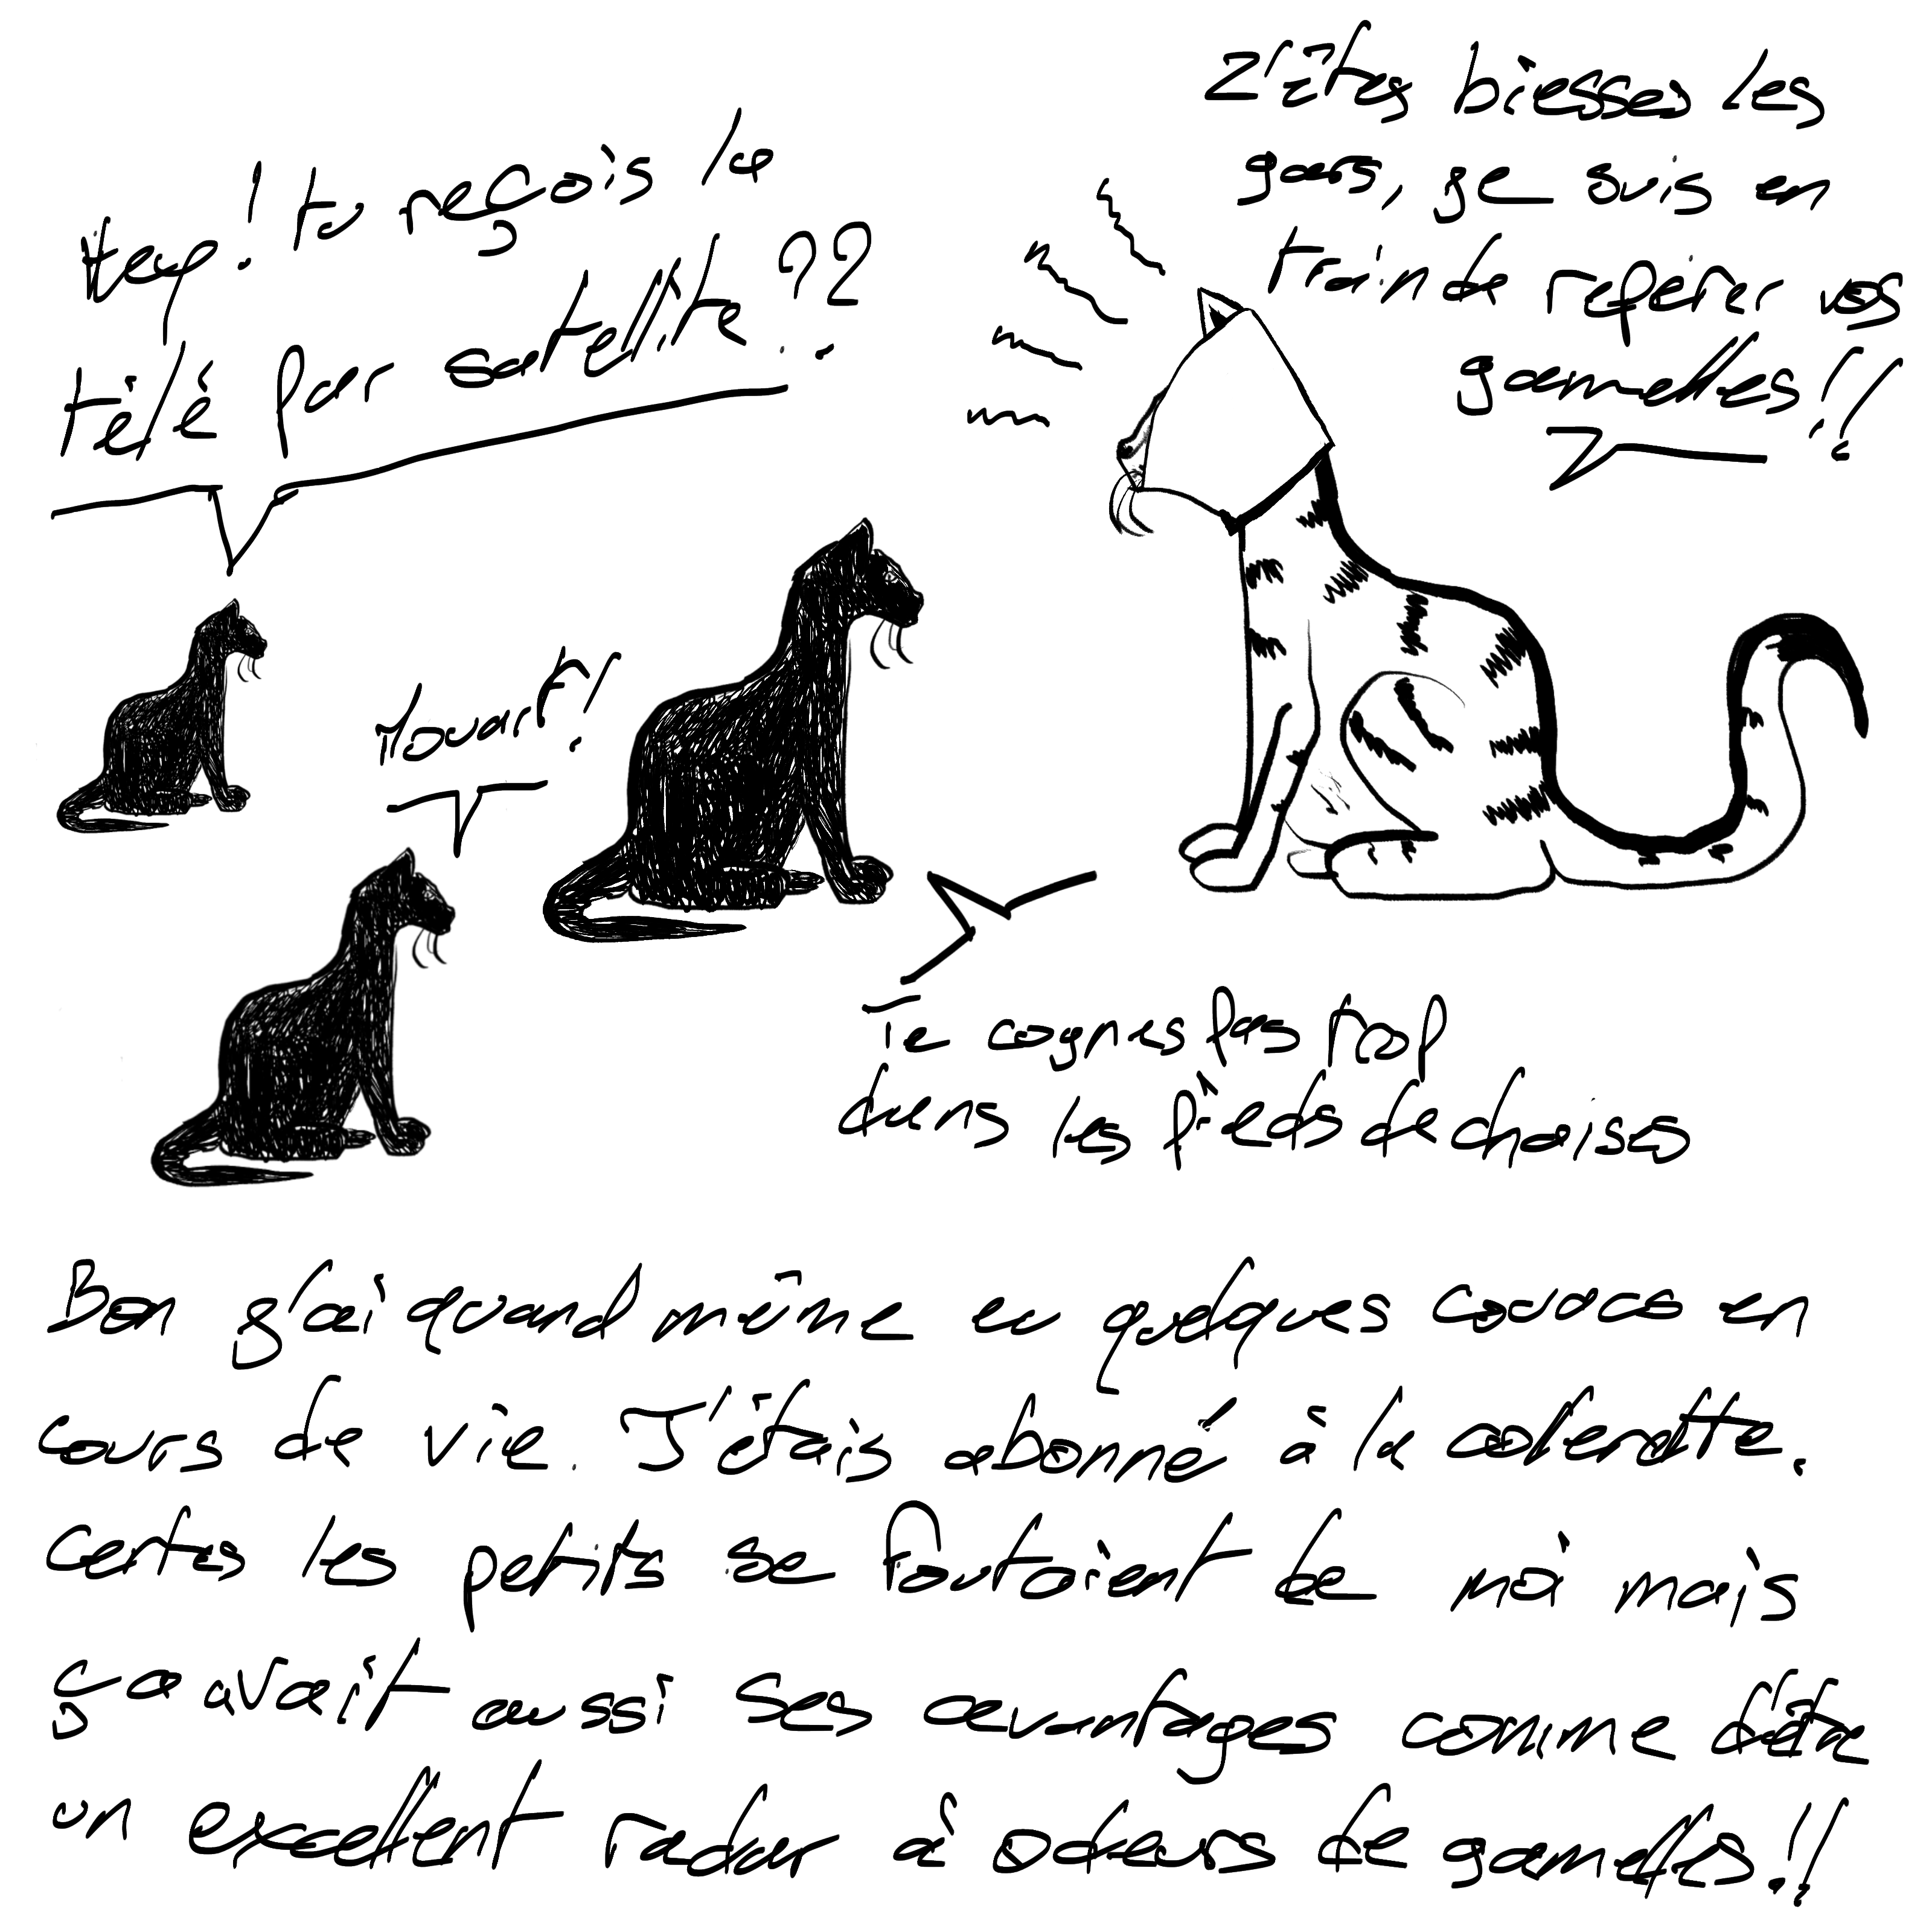 Hey! tu reçois la
télé par satellite??
Z'êtes biesses les
gars, je suis en
train de repérer vos
gamelles!!
Mouart!
Te cognes pas trop
dans les pieds de chaises
Bon j'ai quand même eu quelques couacs en
cours de vie. J'étais abonné à la colerette.
Certes les petits se foutaient de moi mais
ça avait aussi ses avantages comme d'être
un excellent radar à odeurs de gamelles!!